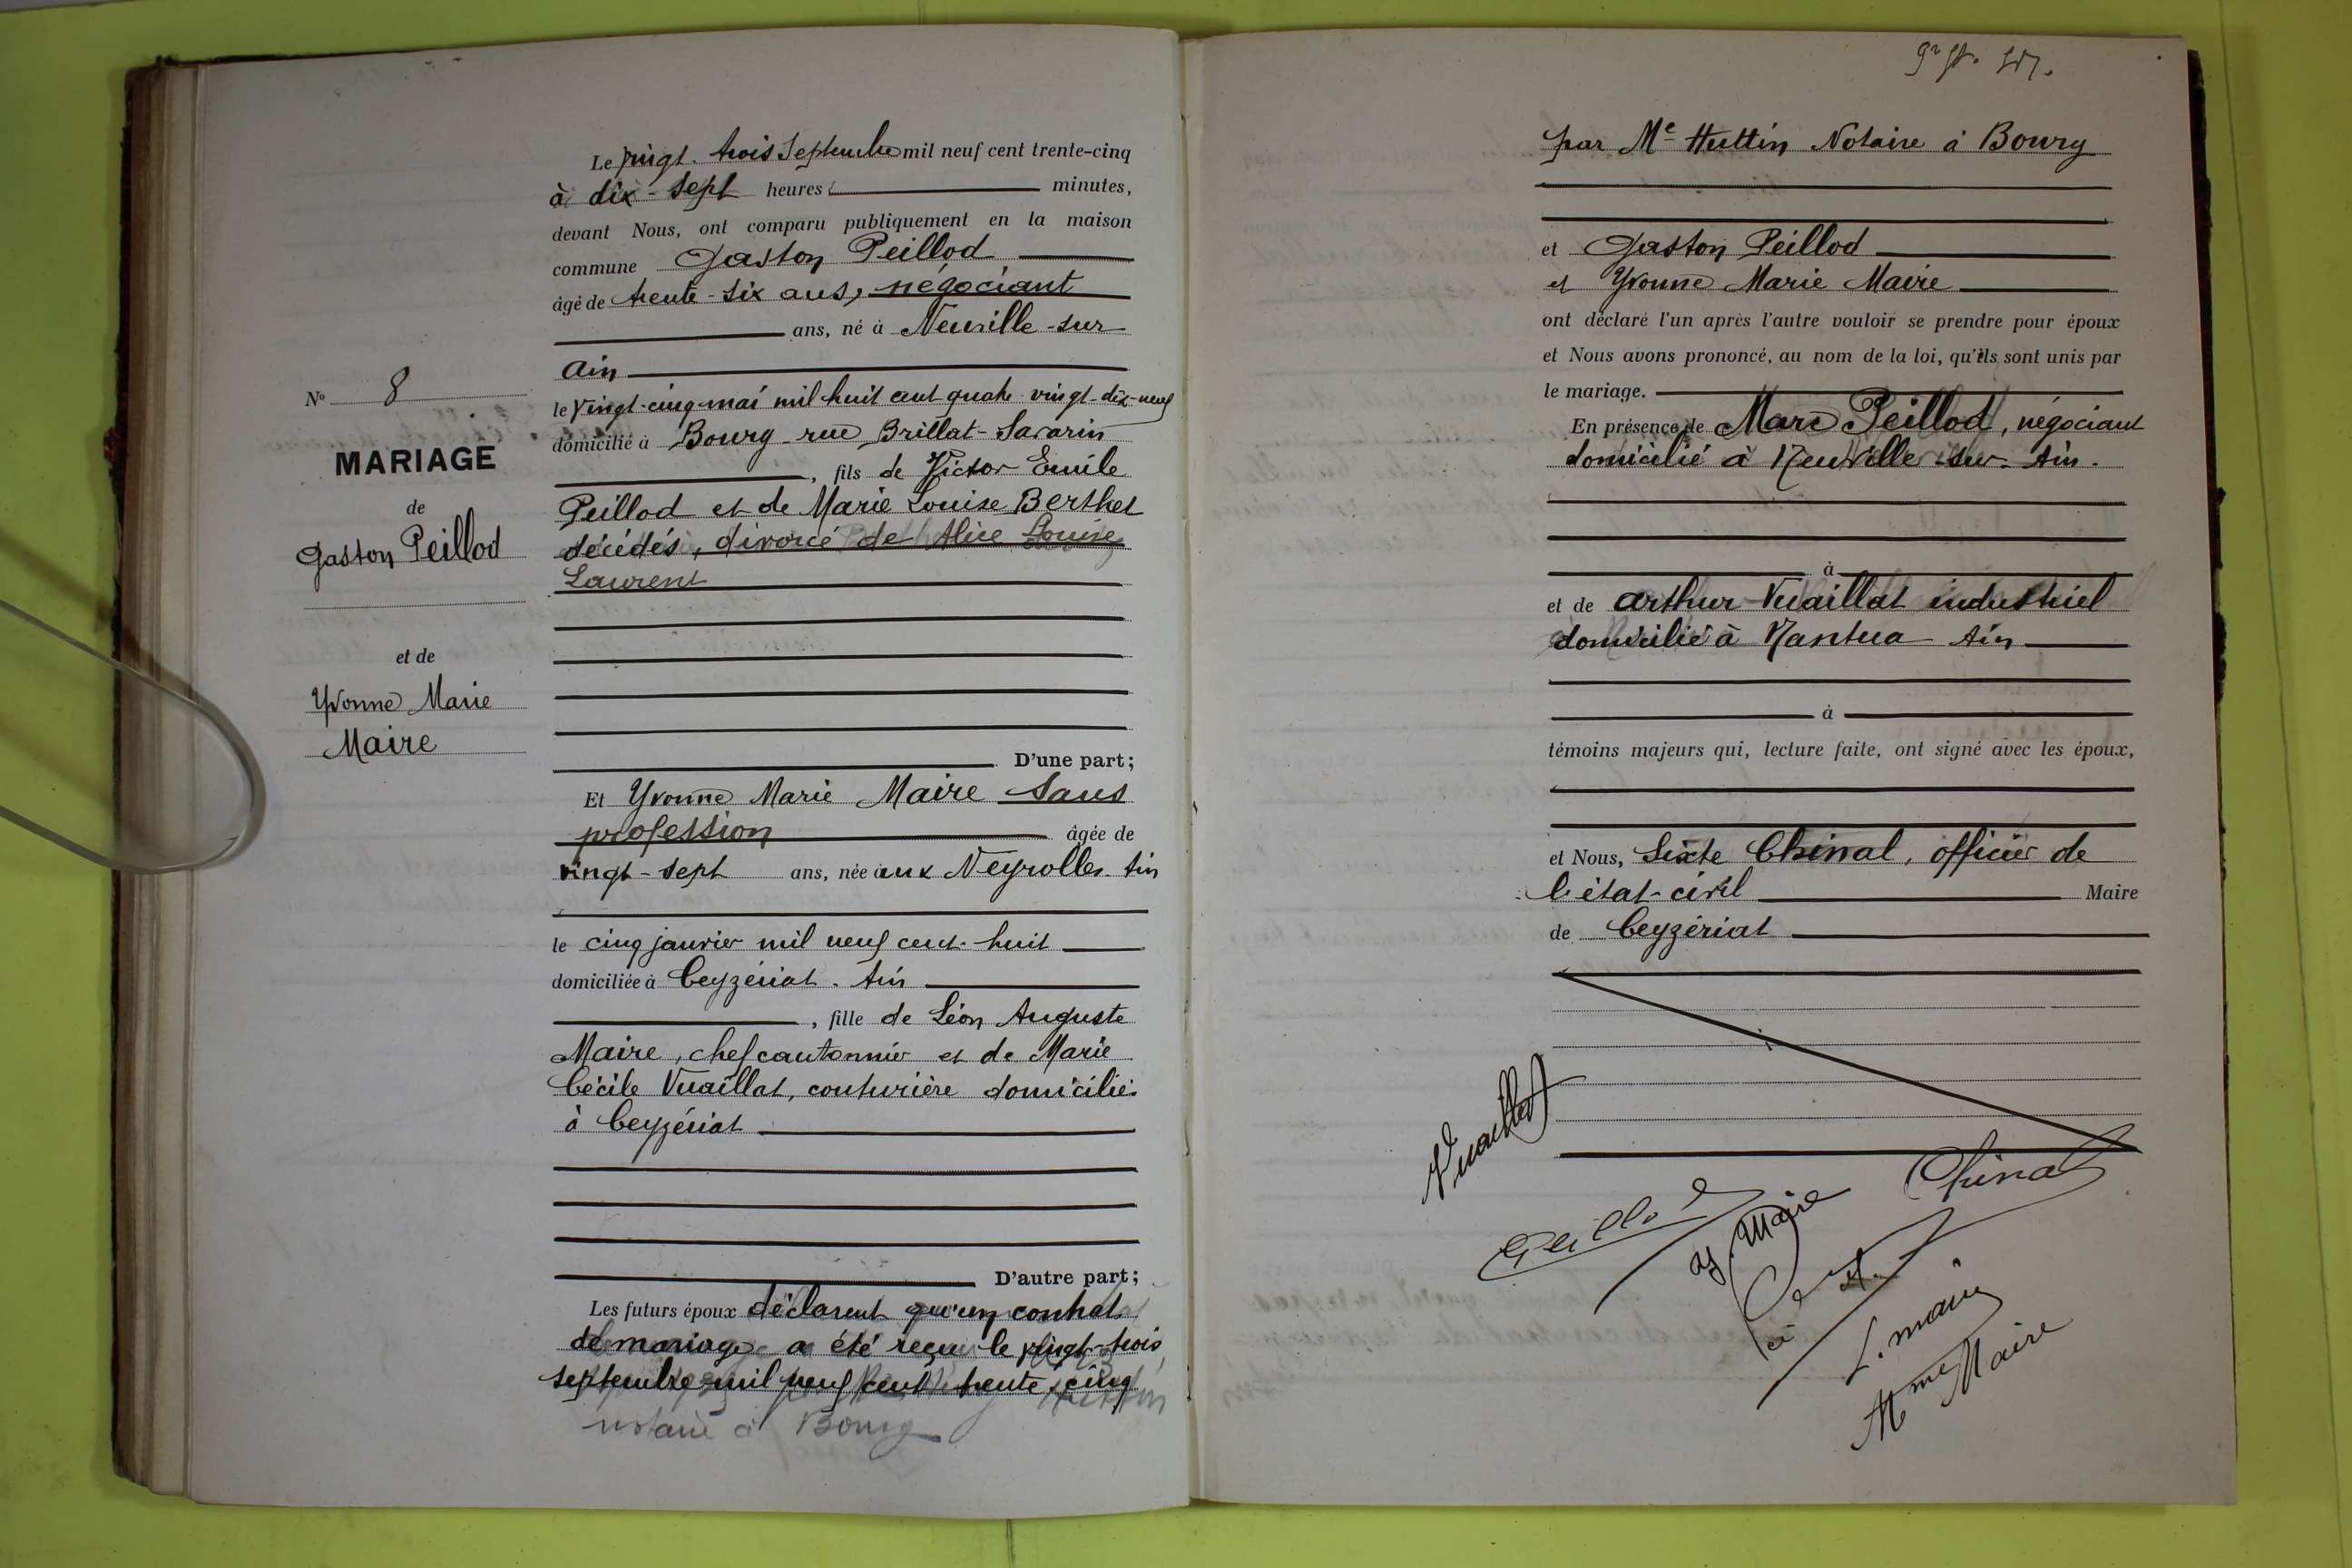 Le vingt-trois Septembre mil neuf cent trente-cinq
à dix-sept heures minutes,
devant Nous, ont comparu publiquement en la maison
commune Gaston Peillod
âgé de trente-six ans, négociant
ans, né à Neuville-sur
Ain
le vingt-cinq mai mil huit cent quatre vingt-dix-neuf
domicilié à Bourg rue Brillat-Savarin
, fils de Victor Emile
Peillod et de Marie Louise Berthet
décédés, divorcé de Alice Louise
Laurent
D'une part;
Et Yvonne Marie Maire Sans
profession âgée de
vingt-sept ans, née aux Neyrolles Ain
le cinq janvier mil neuf cent huit
domiciliée à Ceyzériat. Ain
, fille de Léon Auguste
Maire, chef cantonnier et de Marie
Cécile Vuaillat, couturière domiciliés
à Ceyzériat
D'autre part;
Les futurs époux déclarent qu'un contrat
de mariage a été reçu le vingt-trois
septembre mil neuf cent trente-cinq
notaire à Bourg
N° 8
MARIAGE
de
Gaston Peillod
et de
Yvonne Marie
Maire
par Me Huttin Notaire à Bourg
et Gaston Peillod
et Yvonne Marie Maire
ont déclaré l'un après l'autre vouloir se prendre pour époux
et Nous avons prononcé, au nom de la loi, qu'ils sont unis par
le mariage.
En présence de Marc Peillod, négociant
domicilié à Neuville-sur-Ain.
à
et de Arthur Vuaillat industriel
domicilié à Nantua Ain
à
témoins majeurs qui, lecture faite, ont signé avec les époux,
et Nous, Sixte Chinal, officier de
l'état-civil Maire
de Ceyzériat
Vuaillat
Peillod
Y. Maire
Chinal
L. Maire
Mme Maire